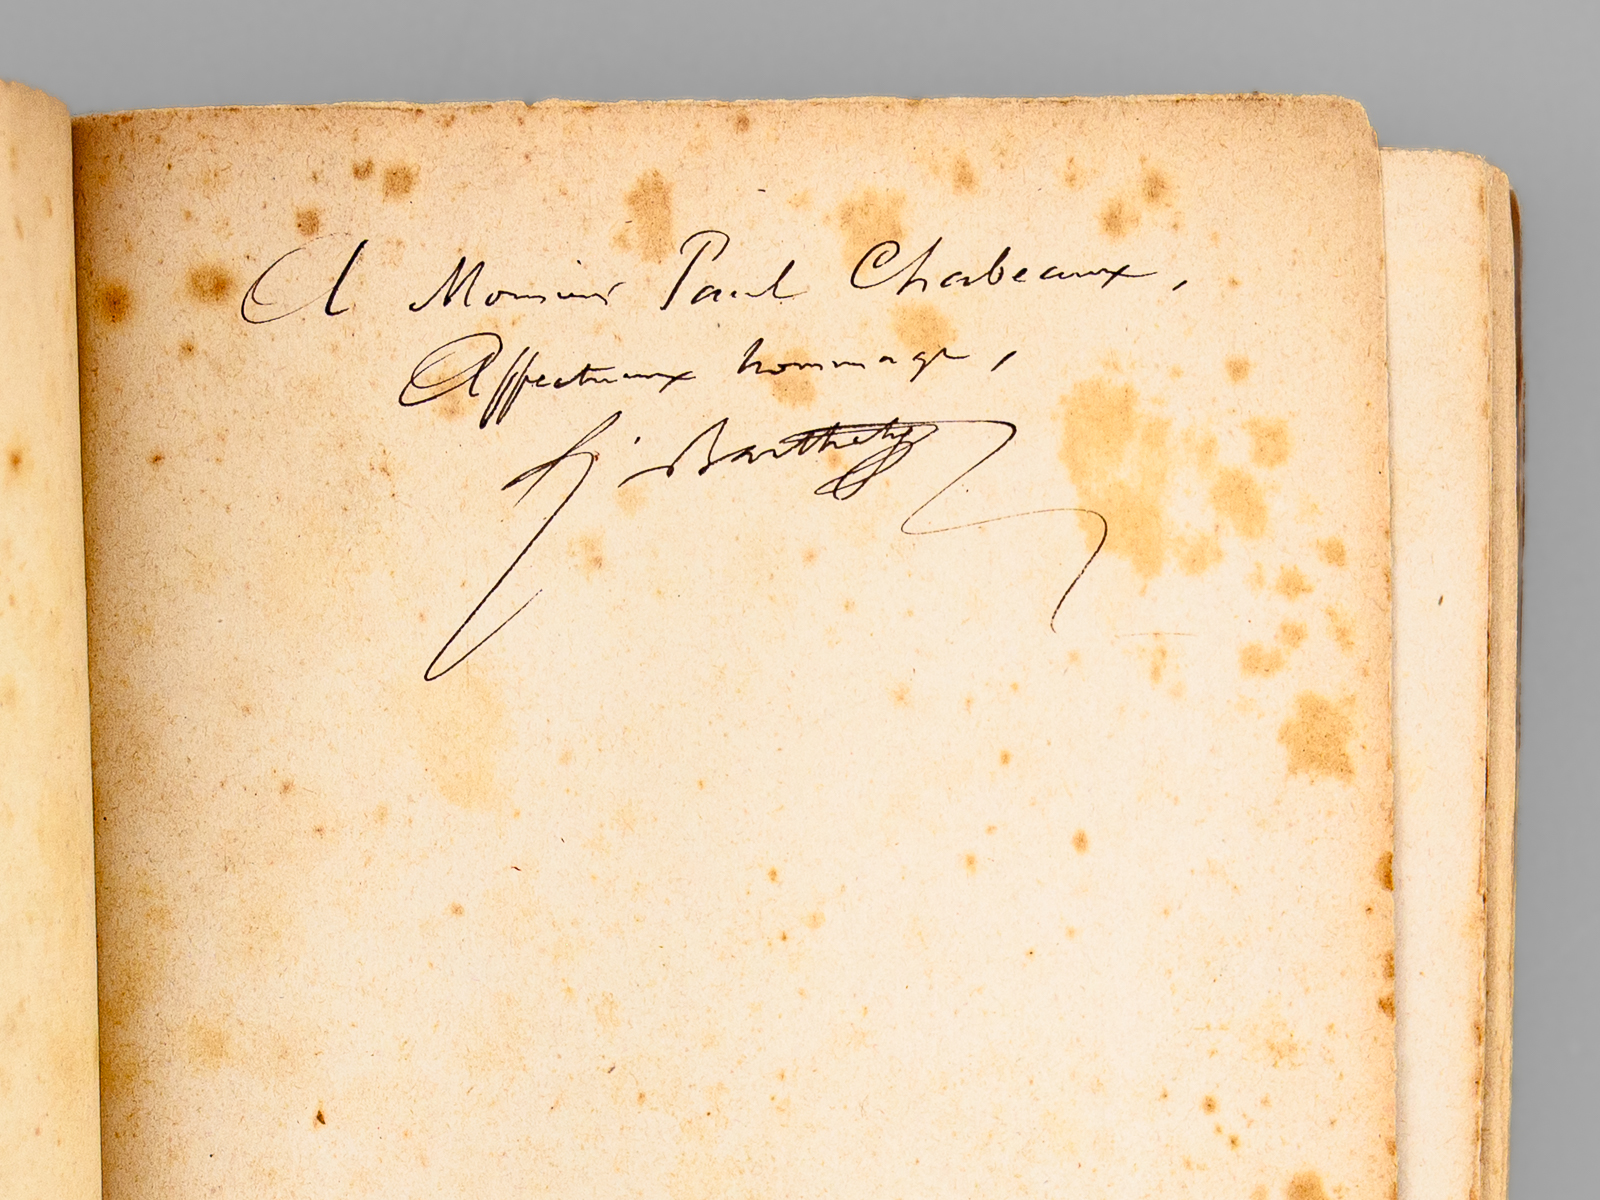 A Monsieur Paul Chabeaux,
Affectueux hommage,
J. Barthety